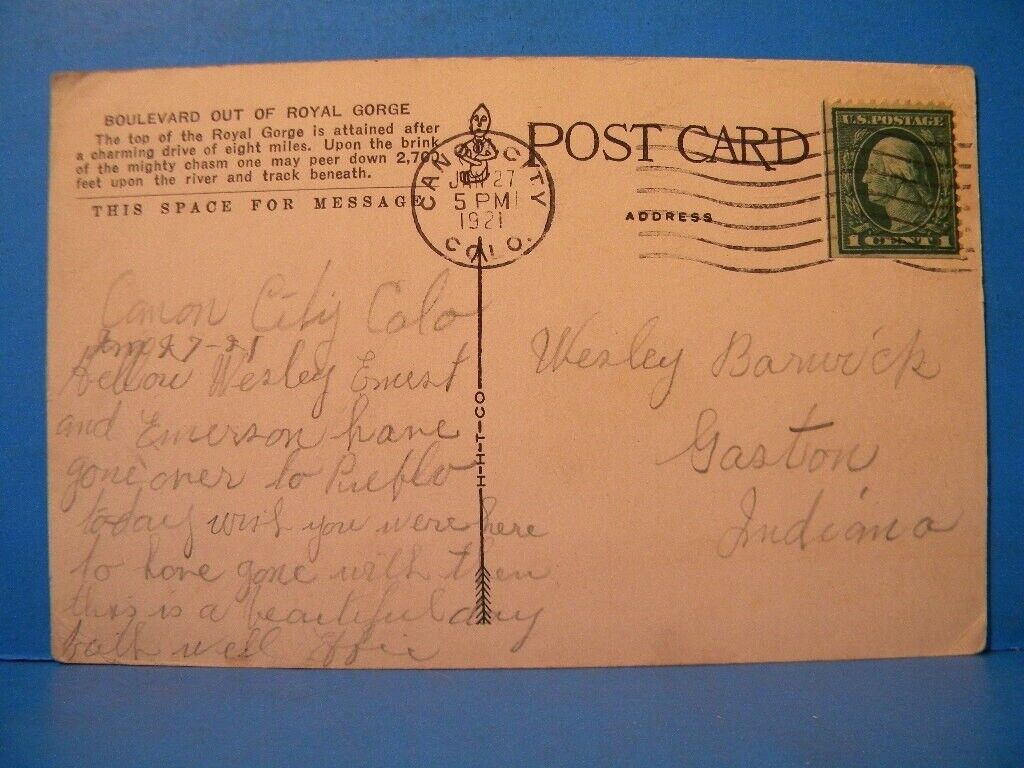 BOULEVARD OUT OF ROYAL GORGE
The top of the Royal Gorge is attained after
a charming drive of eight miles. Upon the brink
of the mighty chasm one may peer down 2,700
feet upon the river and track beneath.
THIS SPACE FOR MESSAGE
CANON CITY
JAN 27
5 PM
1921
COLO.
POST CARD
ADDRESS
U.S. POSTAGE
1 CENT 1
H-H-T-CO
Canon City Colo
Jan 27-21
Hellow Wesley Ernest
and Emerson have
gone over to Pueblo
today wish you were here
to have gone with them
this is a beautiful day
both well Effie
Wesley Barwick
Gaston
Indiana